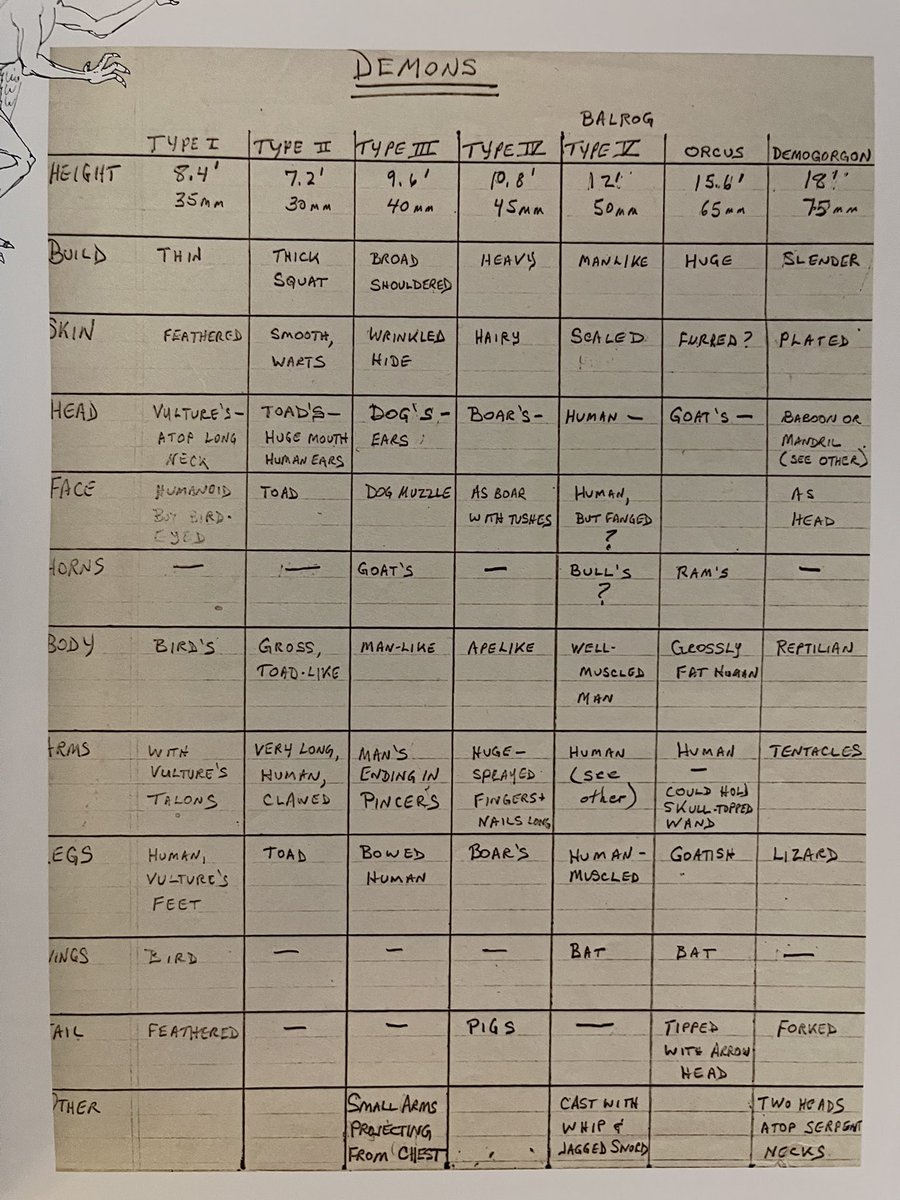 DEMONS
BALROG
TYPE I TYPE II TYPE III TYPE IV TYPE V ORCUS DEMOGORGON
HEIGHT 8.4' 7.2' 9.6' 10.8' 12' 15.6' 18'
35mm 30mm 40mm 45mm 50mm 65mm 75mm
BUILD THIN THICK BROAD HEAVY MANLIKE HUGE SLENDER
SQUAT SHOULDERED
SKIN FEATHERED SMOOTH, WRINKLED HAIRY SCALED FURRED? PLATED
WARTS HIDE
HEAD VULTURE'S— TOAD'S— DOG'S— BOAR'S— HUMAN— GOAT'S— BABOON OR
ATOP LONG HUGE MOUTH EARS MANDRIL
NECK HUMAN EARS (SEE OTHER)
FACE HUMANOID TOAD DOG MUZZLE AS BOAR HUMAN, AS
BUT BIRD- WITH TUSHES BUT FANGED HEAD
EYED ?
HORNS — — GOAT'S — BULL'S RAM'S —
?
BODY BIRD'S GROSS, MAN-LIKE APELIKE WELL- GROSSLY REPTILIAN
TOAD-LIKE MUSCLED FAT HUMAN
MAN
ARMS WITH VERY LONG, MAN'S HUGE— HUMAN HUMAN TENTACLES
VULTURE'S HUMAN, ENDING IN SPRAYED (see —
TALONS CLAWED PINCER'S FINGERS+ other) COULD HOLD
NAILS LONG SKULL-TOPPED
WAND
LEGS HUMAN, TOAD BOWED BOAR'S HUMAN- GOATISH LIZARD
VULTURE'S HUMAN MUSCLED
FEET
WINGS BIRD — — — BAT BAT —
TAIL FEATHERED — — PIGS — TIPPED FORKED
WITH ARROW
HEAD
OTHER SMALL ARMS CAST WITH TWO HEADS
PROJECTING WHIP & ATOP SERPENT
FROM CHEST JAGGED SWORD NECKS